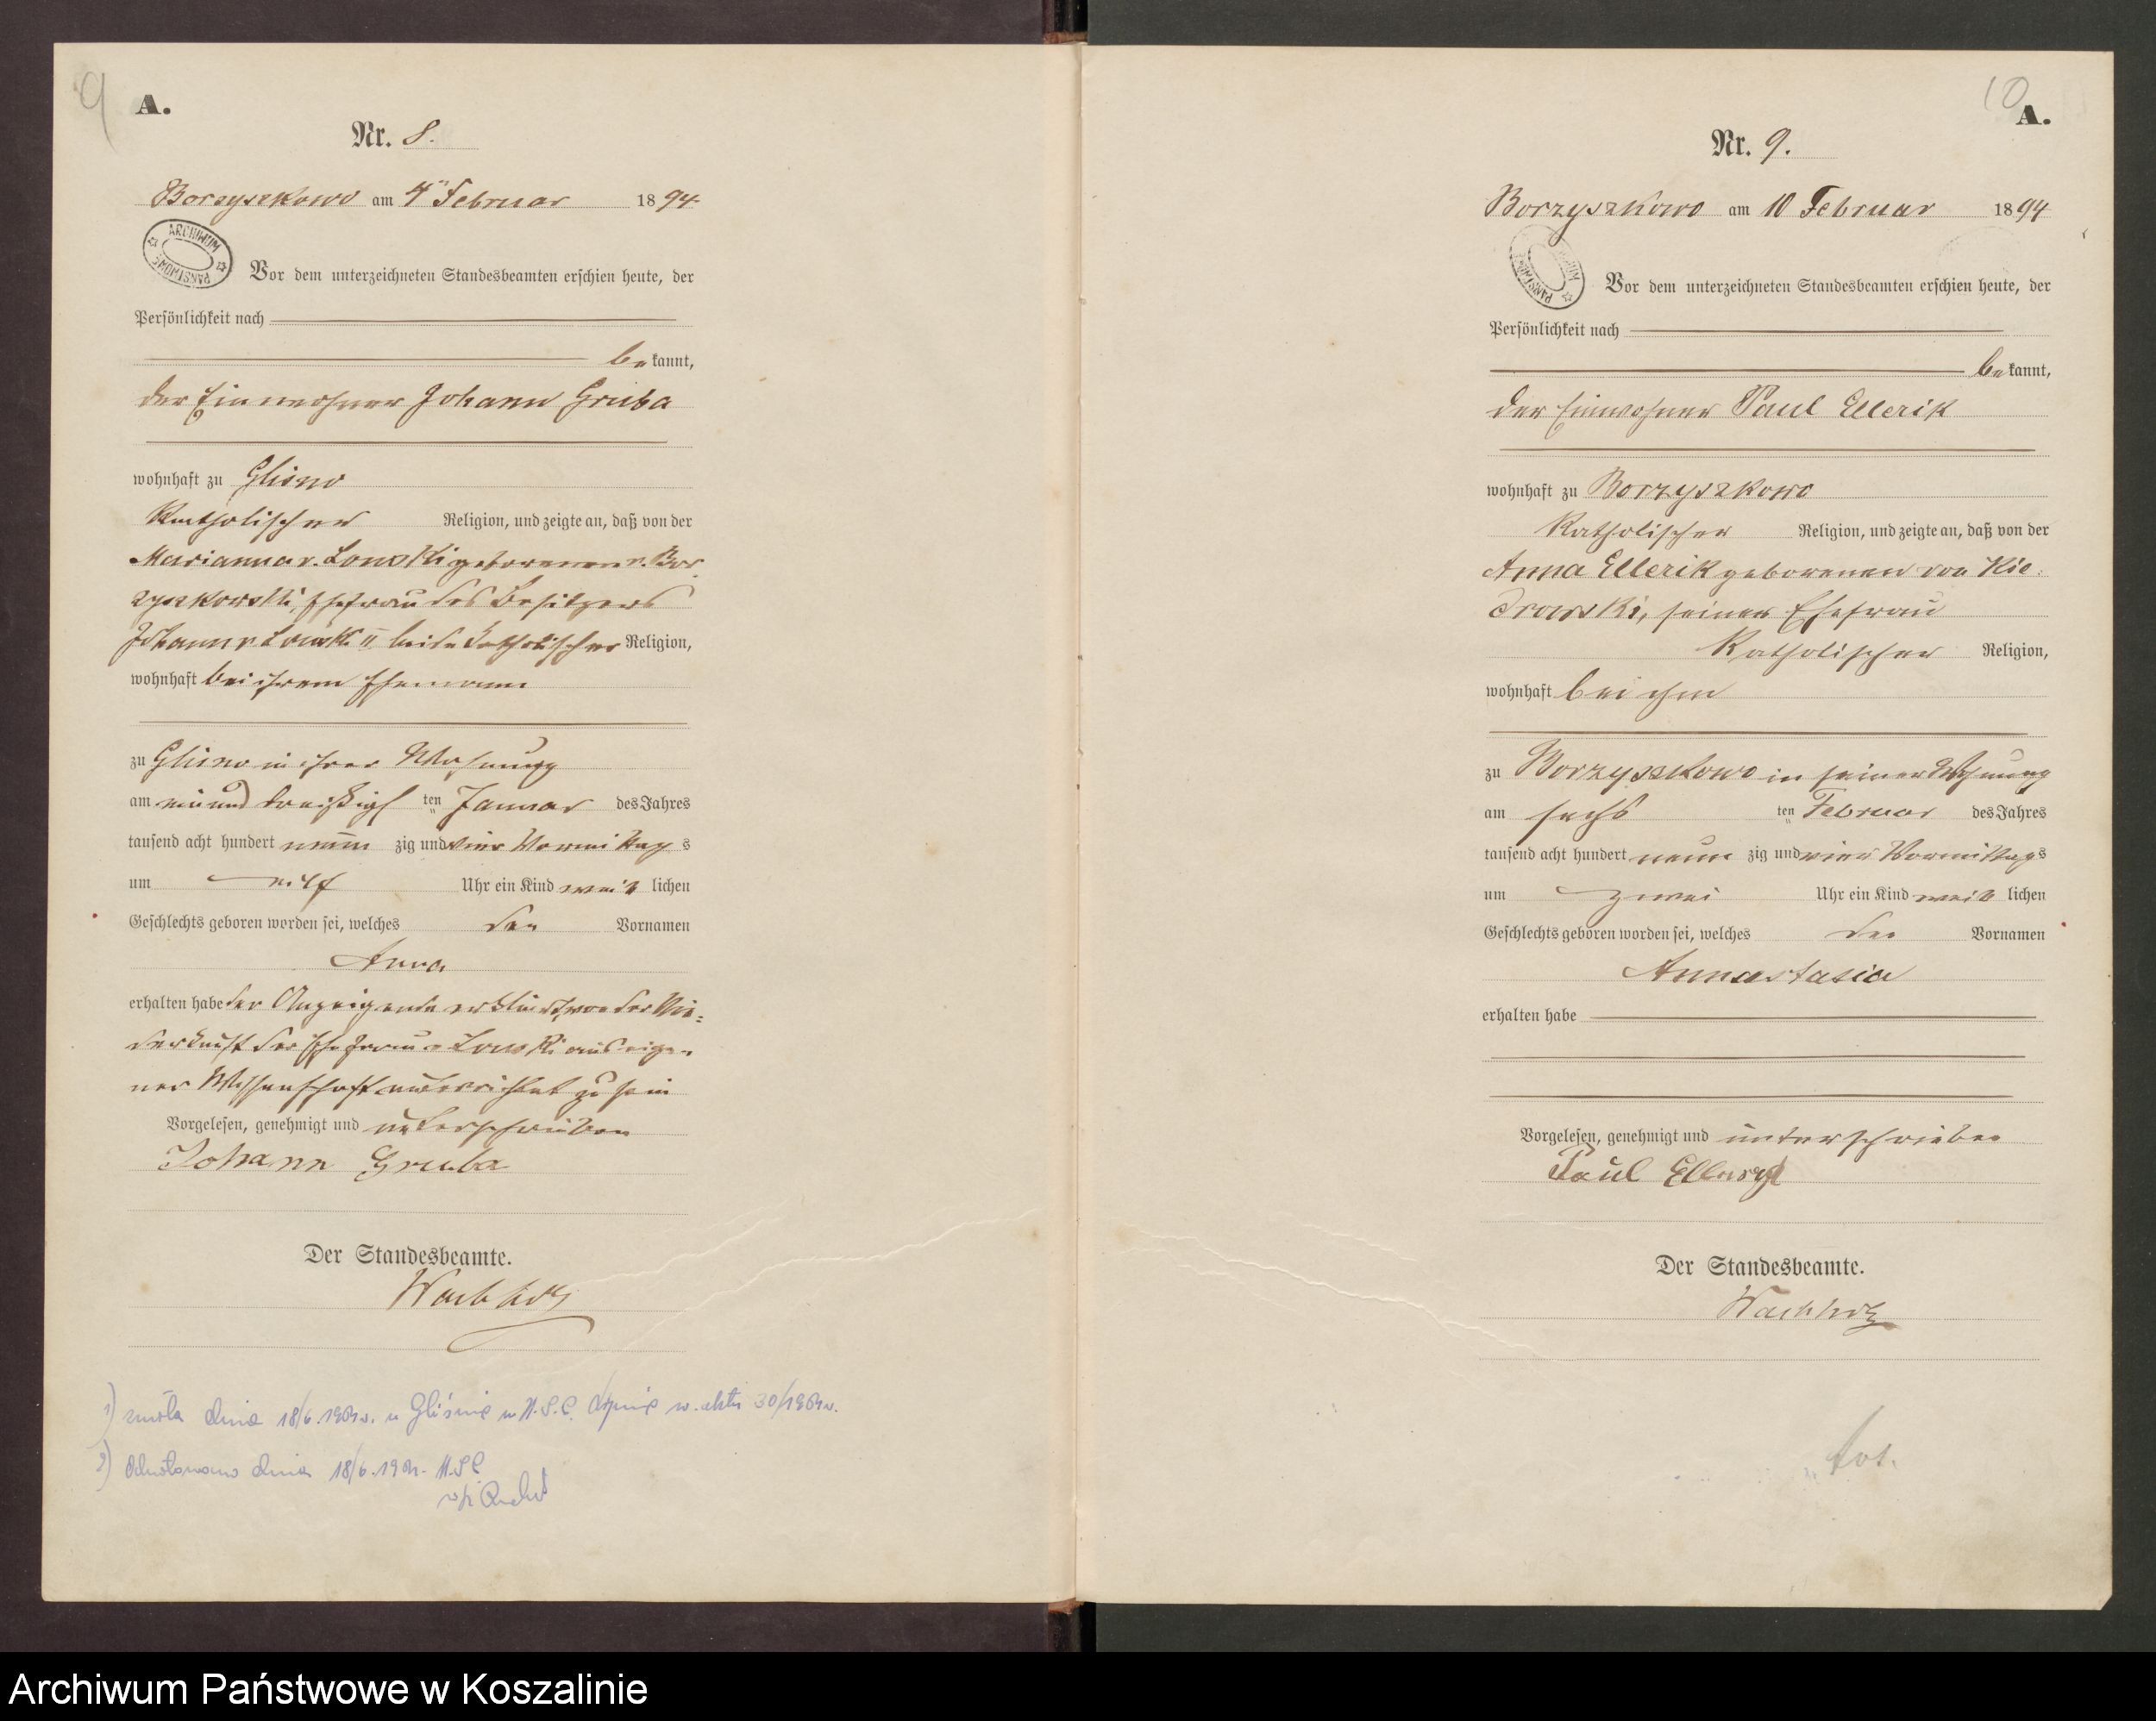 9
A.
Nr. 8.
Borzyszkowo am 4ten Februar 1894
ARCHIWUM PAŃSTWOWE
Vor dem unterzeichneten Standesbeamten erschien heute, der
Persönlichkeit nach
bekannt,
der Einwohner Johann Gruba
wohnhaft zu Glisno
Katholischer Religion, und zeigte an, daß von der
Marianna v. Lonski geborenen v. Bor-
zyszkowski, Ehefrau des Besitzers
Johann v. Lonski II beide katholischer Religion,
wohnhaft bei ihrem Ehemann
zu Glisno in ihrer Wohnung
am ein und dreißigsten Januar des Jahres
tausend acht hundert neunzig und vier Vormittags
um elf Uhr ein Kind weiblichen
Geschlechts geboren worden sei, welches den Vornamen
Anna
erhalten habe der Anzeigende erklärt, von der Nie-
derkunft der Ehefrau v. Lonski aus eige-
ner Wissenschaft unterrichtet zu sein
Vorgelesen, genehmigt und unterschrieben
Johann Gruba
Der Standesbeamte.
Wachholz
1) zmarła dnia 18/6. w Gliśnie w U.S.C. Lipnica w. aktu 30/
2) Odnotowano dnia 18/6. U.S.C.
10
A.
Nr. 9.
Borzyszkowo am 10 Februar 1894
Vor dem unterzeichneten Standesbeamten erschien heute, der
Persönlichkeit nach
bekannt,
der Einwohner Paul Ellerik
wohnhaft zu Borzyszkowo
Katholischer Religion, und zeigte an, daß von der
Anna Ellerik geborenen von Kie-
drowski, seiner Ehefrau
Katholischer Religion,
wohnhaft bei ihm
zu Borzyszkowo in seiner Wohnung
am sechsten Februar des Jahres
tausend acht hundert neunzig und vier Vormittags
um zwei Uhr ein Kind weiblichen
Geschlechts geboren worden sei, welches den Vornamen
Annastasia
erhalten habe
Vorgelesen, genehmigt und unterschrieben
Paul
Der Standesbeamte.
Wachholz
Archiwum Państwowe w Koszalinie